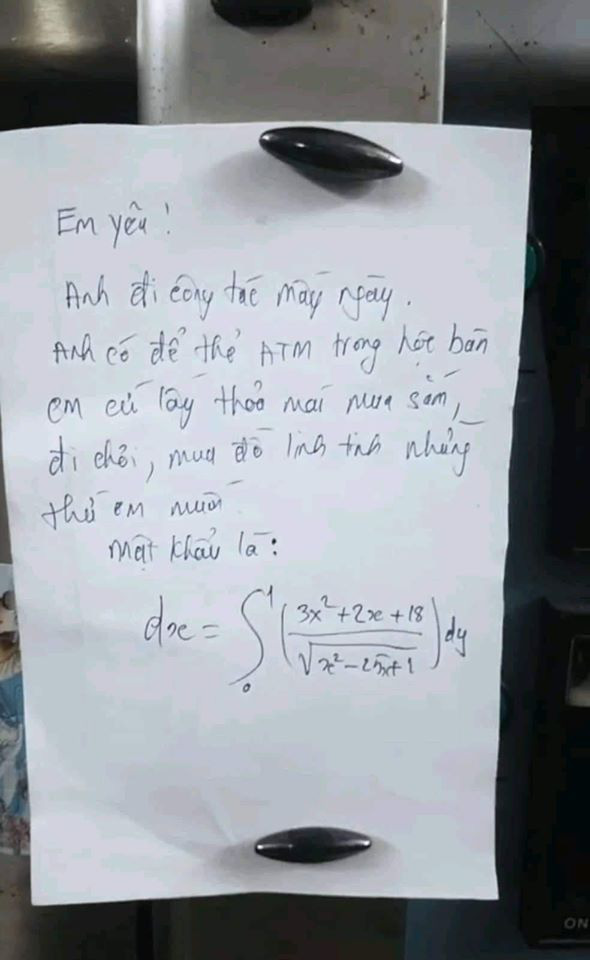 Em yêu!
Anh đi công tác mấy ngày.
Anh có để thẻ ATM trong hộc bàn
em cứ lấy thoả mái mua sắm,
đi chơi, mua đồ linh tinh những
thứ em muốn
Mật khẩu là:
dx = ∫₀¹ ((3x² + 2x + 18) / √(x² - 25x + 1)) dy
ON